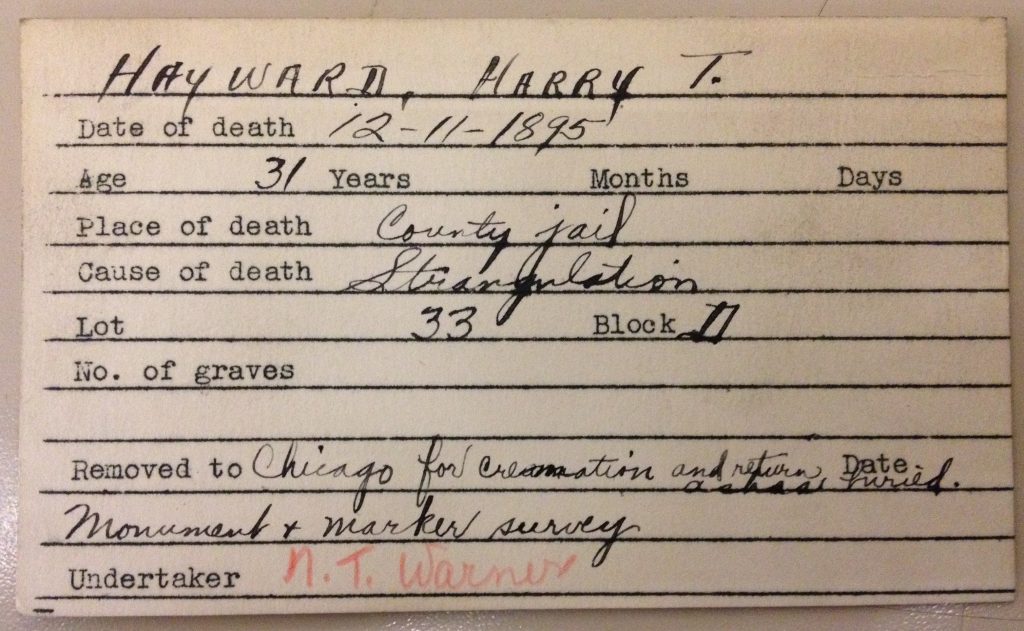 HAYWARD, HARRY T.
Date of death 12-11-1895
Age 31 Years Months Days
Place of death County jail
Cause of death Strangulation
Lot 33 Block D
No. of graves
Removed to Chicago for cremation and return Date
ashes buried.
Monument & marker survey
Undertaker N. T. Warner